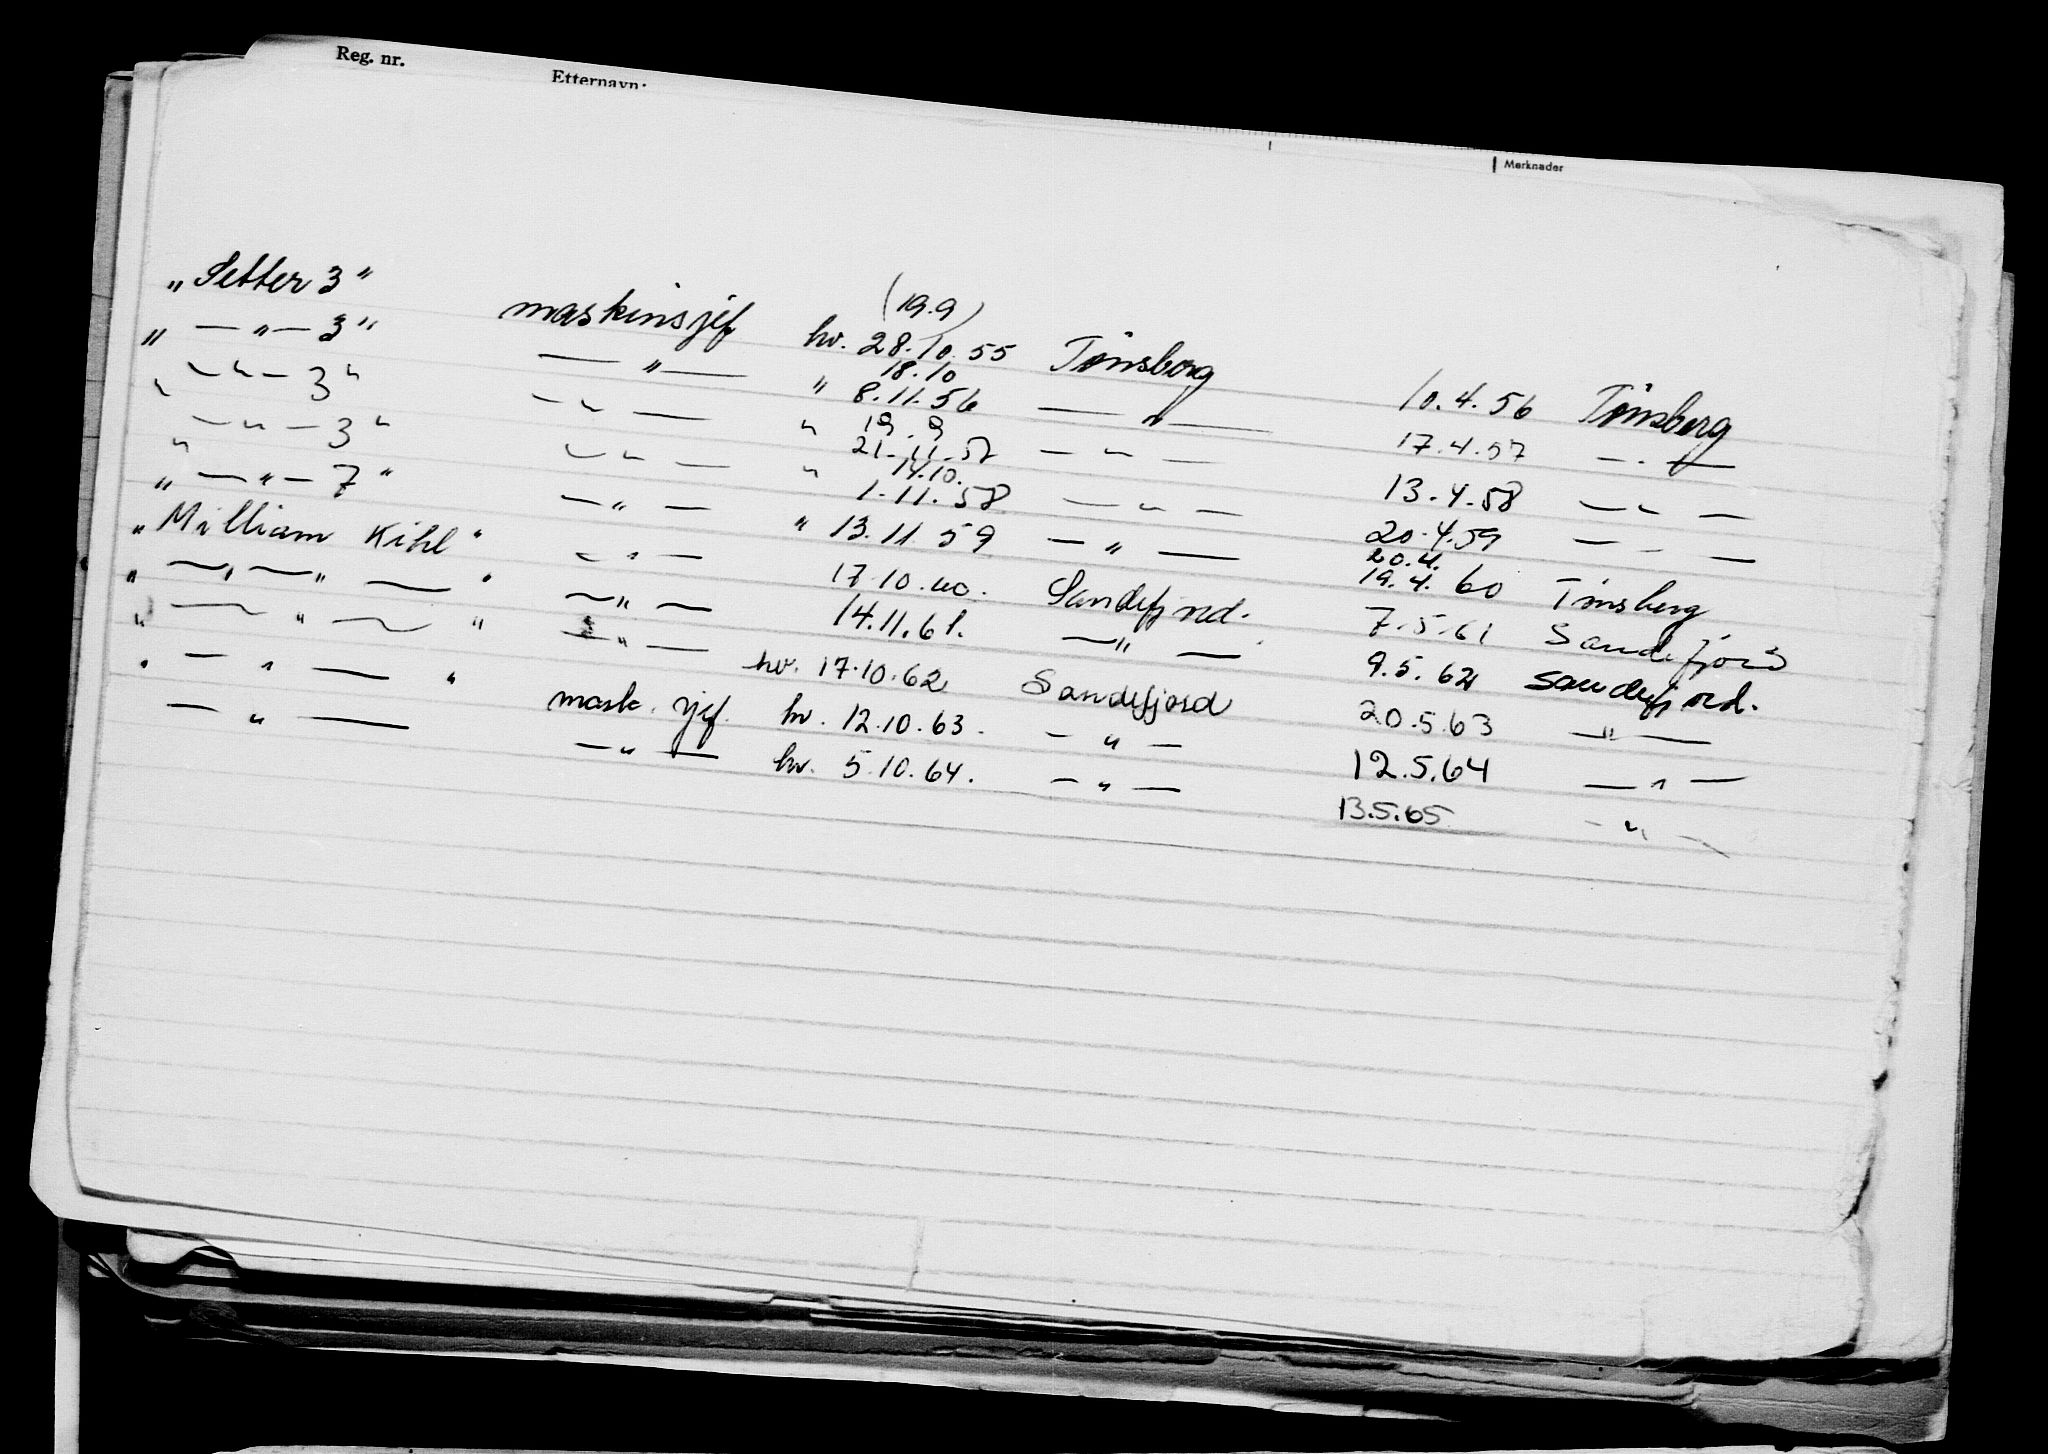 Reg. nr.
Etternavn:
Merknader
„Setter 3" maskinsjef hv. (19.9) 28.10.55 Tønsberg 10.4.56 Tønsberg
„ — „ — 3" — „ — „ 18.10 8.11.56 — „ — 17.4.57 — „ —
„ — „ — 3" — „ — „ 19.9 21.11.57 — „ — 13.4.58 — „ —
„ — „ — 3" — „ — „ 14.10. 1.11.58 — „ — 20.4.59 — „ —
„ — „ — 7" — „ — „ 13.11.59 — „ — 20.4. 19.4.60 Tønsberg
„William Kihl" — „ — 17.10.60. Sandefjord. 7.5.61 Sandefjord
„ — „ — „ — " — „ — 14.11.61. — „ — 9.5.62 Sandefjord.
„ — „ — " — „ — hv. 17.10.62 Sandefjord 20.5.63 — „ —
„ — „ — " mask. sjef. hv. 12.10.63. — „ — 12.5.64 — „ —
— „ — — „ — hv. 5.10.64. — „ — 13.5.65 — „ —